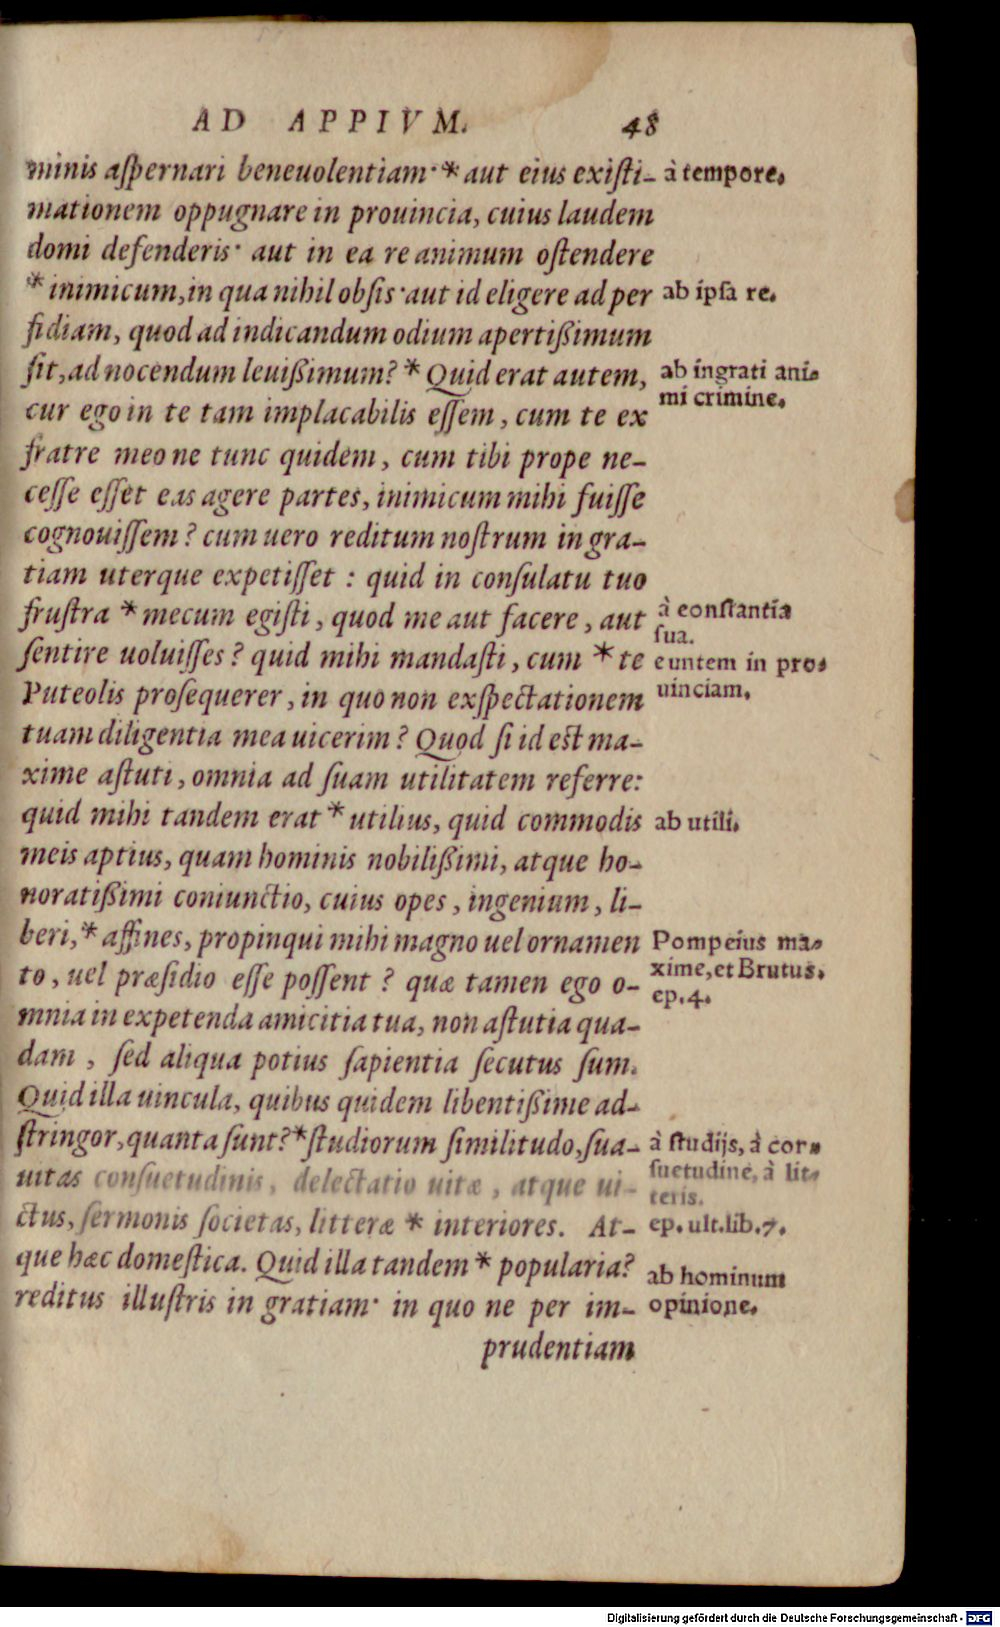 AD APPIVM. 48
minis aſpernari beneuolentiam· * aut eius exiſti- à tempore.
mationem oppugnare in prouincia, cuius laudem
domi defenderis· aut in ea re animum oſtendere
* inimicum, in qua nihil obſis· aut id eligere ad per ab ipſa re.
fidiam, quod ad indicandum odium apertißimum
ſit, ad nocendum leuißimum? * Quid erat autem, ab ingrati ani-
cur ego in te tam implacabilis eſſem, cum te ex mi crimine.
fratre meo ne tunc quidem, cum tibi prope ne-
ceſſe eſſet eas agere partes, inimicum mihi fuiſſe
cognouiſſem? cum uero reditum noſtrum in gra-
tiam uterque expetiſſet : quid in conſulatu tuo
fruſtra * mecum egiſti, quod me aut facere, aut à conſtantia
ſua.
ſentire uoluiſſes? quid mihi mandaſti, cum * te euntem in pro-
Puteolis proſequerer, in quo non exſpectationem uinciam.
tuam diligentia mea uicerim? Quod ſi id eſt ma-
xime aſtuti, omnia ad ſuam utilitatem referre:
quid mihi tandem erat * utilius, quid commodis ab utili.
meis aptius, quam hominis nobilißimi, atque ho-
noratißimi coniunctio, cuius opes, ingenium, li-
beri, * affines, propinqui mihi magno uel ornamen Pompeius ma-
to, uel præſidio eſſe poſſent? quæ tamen ego o- xime, et Brutus.
ep. 4.
mnia in expetenda amicitia tua, non aſtutia qua-
dam, ſed aliqua potius ſapientia ſecutus ſum.
Quid illa uincula, quibus quidem libentißime ad-
ſtringor, quanta ſunt? * ſtudiorum ſimilitudo, ſua- à ſtudijs, à con-
uitas conſuetudinis, delectatio uitæ, atque ui- ſuetudine, à lit-
teris.
ctus, ſermonis ſocietas, litteræ * interiores. At- ep. ult. lib. 7.
que hæc domeſtica. Quid illa tandem * popularia? ab hominum
reditus illuſtris in gratiam· in quo ne per im- opinione.
prudentiam
Digitalisierung gefördert durch die Deutsche Forschungsgemeinschaft - DFG